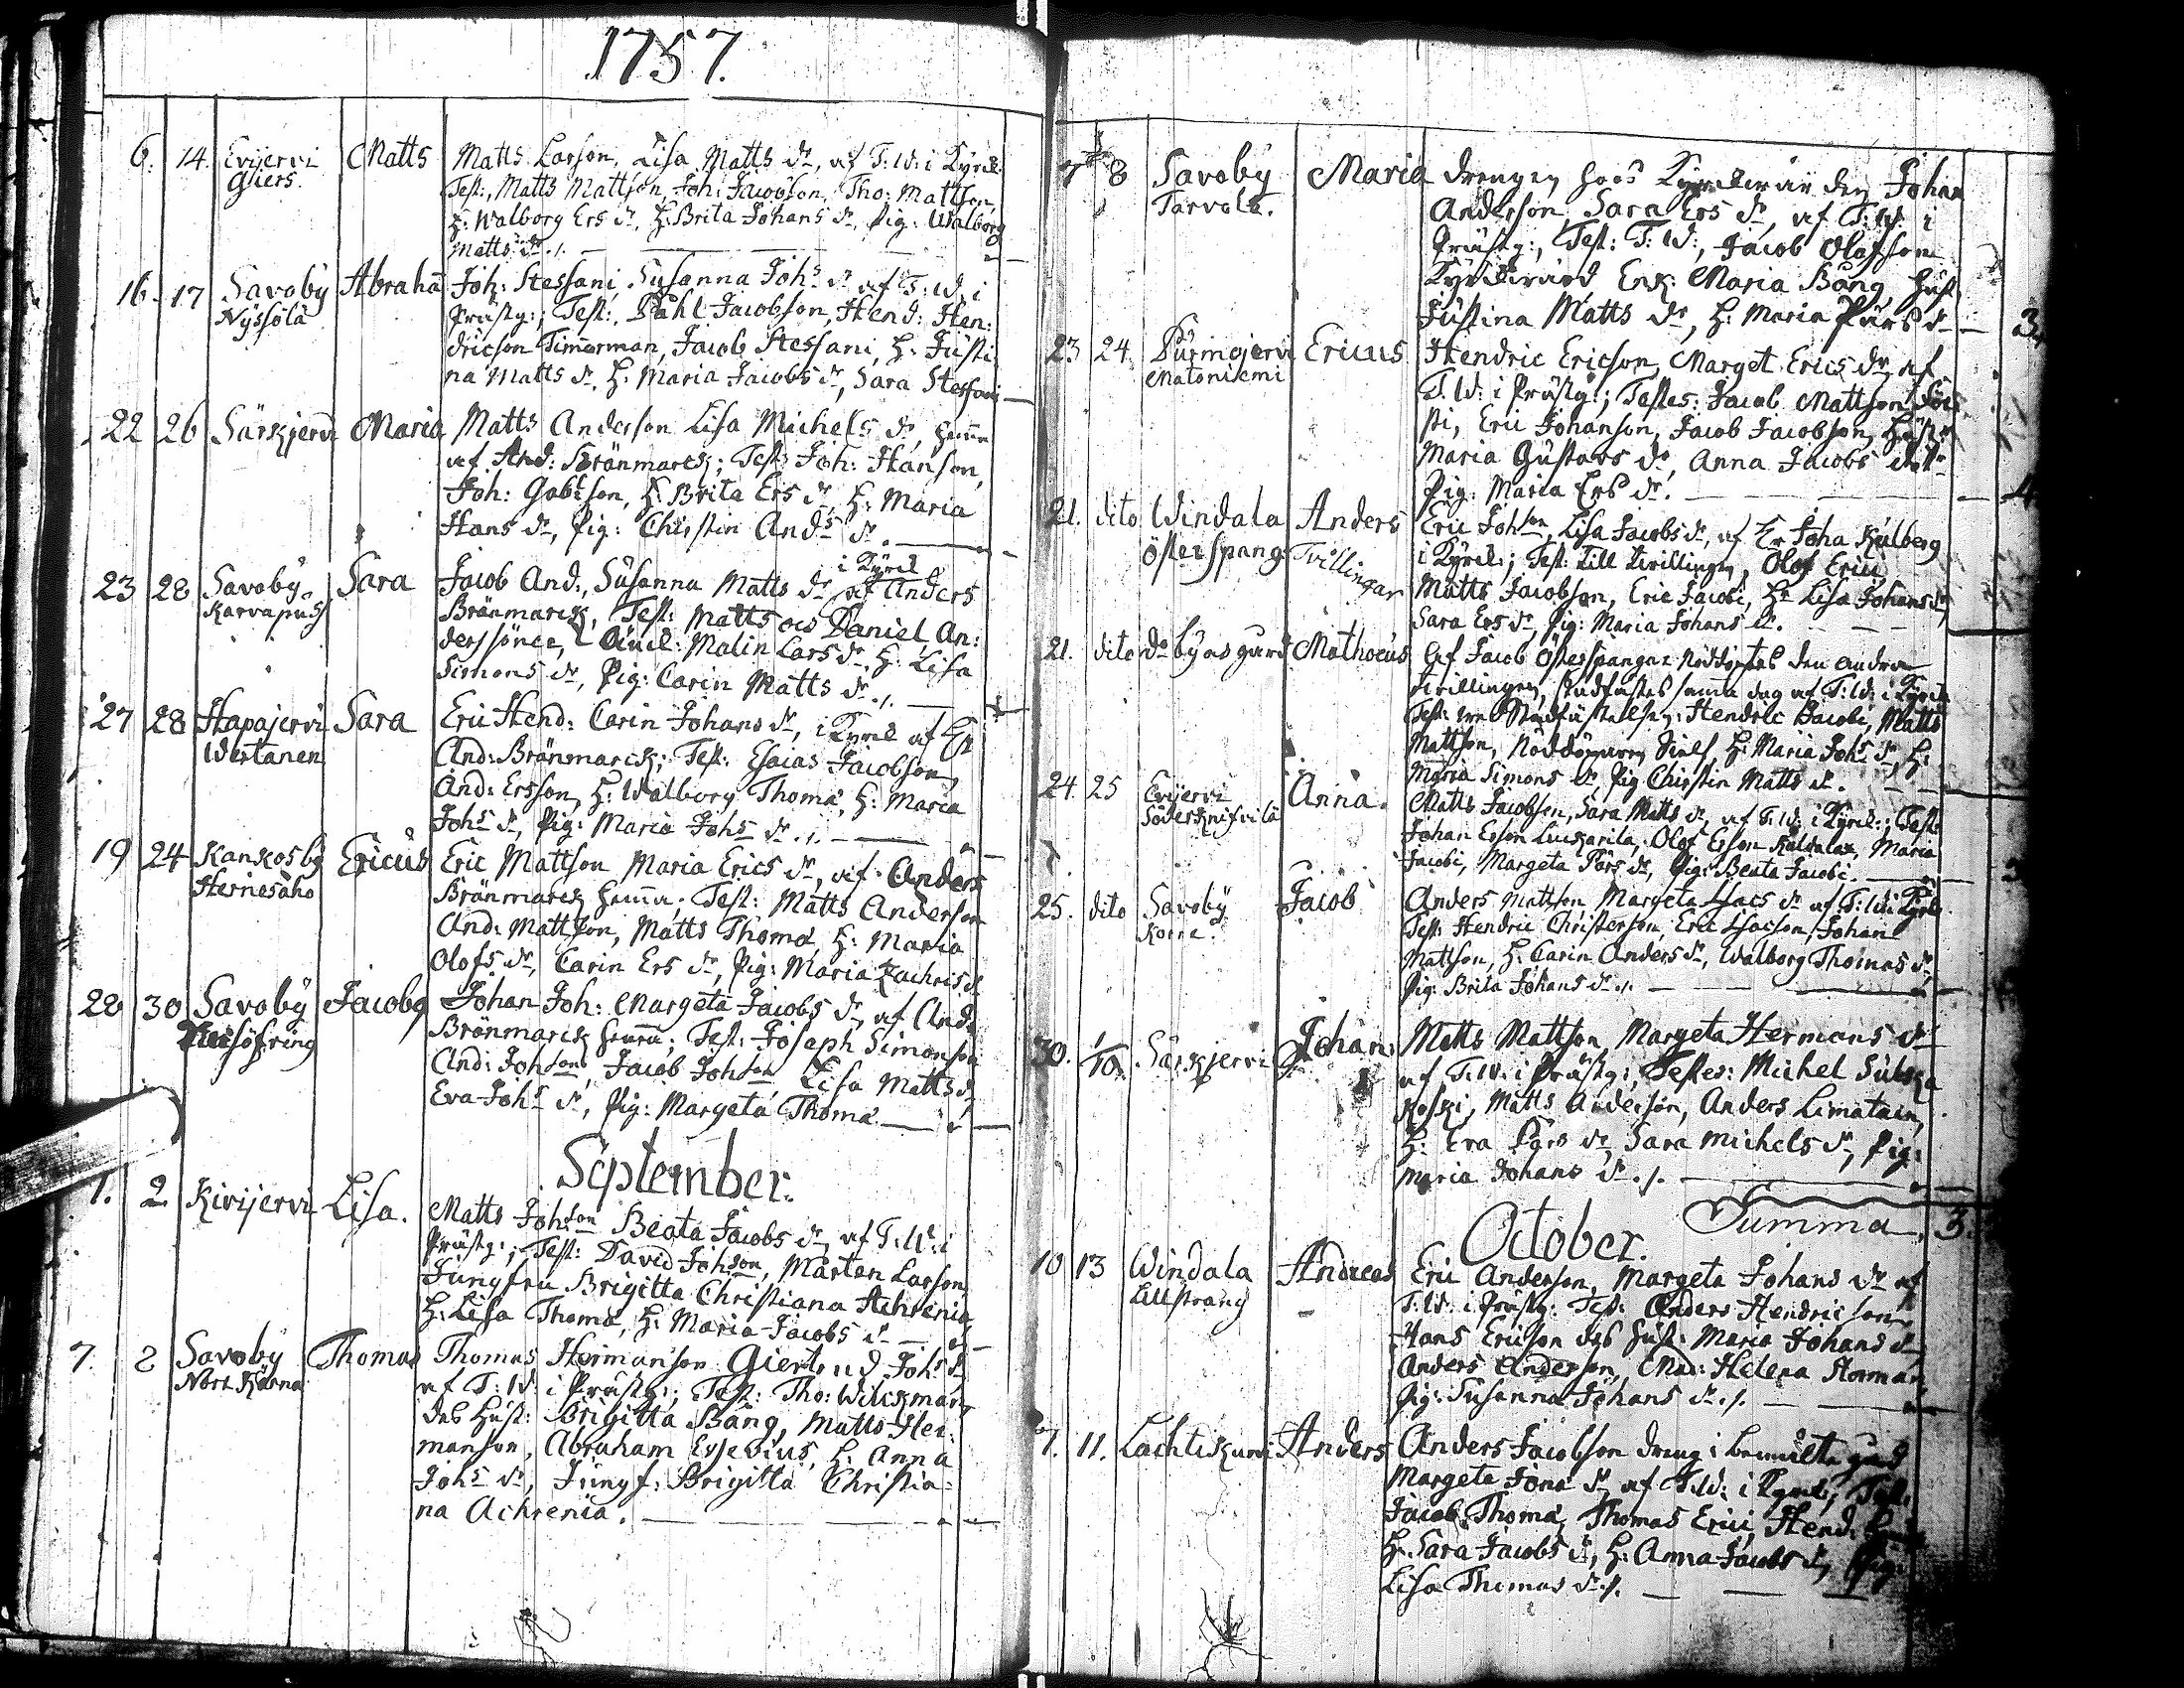 1757.
6. 14. Evijervi Matts Matts Larson, Lisa Matts dr, af T: W: i Kyrck:
Gliers. Test:, Matts Mattson, Joh: Jacobson, Tho: Mattson,
H: Walborg Ers dr, H: Brita Johans dr, Pig: Walborg
Matts dr ./.
16. 17 Savoby Abraham Joh: Stessani, Susanna Johs dr af T: W: i
Nyssölä Prästg:; Test:, Påhl Jacobson, Hend: Hen:
dricson Timmerman, Jacob Stessani, H: Justi
na Matts dr, H: Maria Jacobs dr, Sara Stessani
22 26 Särkjervi Maria Matts Anderson Lisa Michels dr, hemma
af And: Brönmarck; Test: Joh: Hanson,
Joh: Gabrson, H: Brita Ers dr, H: Maria
Hans dr, Pig: Christin Ands dr.
i Kyrck
23 28 Savoby Sara Jacob And:, Susanna Matts dr af Anders
Karvapus Brönmarck, Test: Matts och Daniel An:
derssöner, Malin Lars dr, H: Lisa
Simons dr, Pig: Carin Matts dr ./.
27 28 Hapajervi Sara Eric Hend: Carin Johans dr, i Kyrck af
Wertanen And: Brönmarck; Test: Esaias Jacobson,
And: Ersson, H: Walborg Thomæ, H: Maria
Johs dr, Pig: Maria Johs dr ./.
19 24 Kankosby Ericus Eric Mattson Maria Erics dr, af Anders
Hernesaho Brönmarck hemma; Test: Matts Anderson
And: Mattson, Matts Thomæ, H: Maria
Olofs dr, Carin Ers dr, Pig: Maria Zachris dr
28 30 Savoby Jacobg Johan Joh: Margeta Jacobs dr, af And:
Brönmarck hemma; Test: Joseph Simonson
And: Johson, Jacob Johson Lisa Matts dr
Eva Johs dr, Pig: Margeta Thomæ
September.
1. 2. Kivijervi Lisa. Matts Johson Beata Jacobs dr, af T: W: i
Prästg:; Test: David Johson, Mårten Larson
Jungfru Brigitta Christiana Achrenia
H: Lisa Thomæ, H: Maria Jacobs dr
7. 8 Savoby Thomas Thomas Hermanson Giertrud Johs dr
Norr Kärna af T: W: i Prästg:; Test: Tho: Wilickman
des Hust: Brigitta Bång, Matts Her:
manson, Abraham H: Anna
Johs dr, Jungf: Brigitta Christia:
na Achrenia.
7 8 Savoby Maria drengen hoos Kyrckiovärden Johan
Tarvola. Anderson, Sara Ers dr, af T: W: i
Prästg:, Test: T: W:, Jacob Olofson
Kyrckwärd Enk: Maria Bång Hust
Justina Matts dr, H: Maria Pärs dr 3.
23 24. Purmojervi Ericus Hendric Ericson, Marget Erics dr, af
Matoniemi T. W: i Prästg:; Testes: Jacob Mattson
sti, Eric Johanson, Jacob Jacobson, Hustr
Maria Gustavs dr, Anna Jacobs dotr
Pig: Maria Ers dr. 4
21. dito Windala Anders Eric Johson, Lisa Jacobs dr, af Hr Joha Kålberg
Österspang Tvillingar i Kyrck:; Test: till tvillingen, Olof Erici
Matts Jacobson, Eric Jacobi, Hr Lisa Johans dr
Sara Ers dr, Pig: Maria Johans dr.
21. dito do byas gård Mathæus af Jacob Österspangar nöddöptes den andra
tvillingen, stadfästes samma dag af T: W: i Kyrck
Test: Hendric Jacobi, Matts
Mattson, Nöddöparen Sielf H: Maria Johs dr, H:
Maria Simons dr, Pig Christin Matts dr.
24. 25 Evijervi Anna. Matts Jacobson, Sara Matts dr, af T: W: i Kyrck:; Test:
Söderknifvilä Johan Erson Luckarila, Olof Erson Kaldalax, Maria
Jacobi, Margeta Pärs dr, Pig: Beata Jacobi.
25. dito Savoby Jacob Anders Mattson Margeta Isacs dr af T: W: i Kyrck
Test: Hendric Christerson, Eric Isacson, Johan
Mattson, H: Carin Anders dr, Walborg Thomas dr
Pig: Brita Johans dr ./.
30. 1/10 Särkjervi Johan Matts Mattson Margeta Hermans dr
af T. W: i Prästg:, Testes: Michel Sulka
koski, Matts Anderson, Anders Limatain,
H: Eva Pärs dr, Sara Michels dr, Pig:
Maria Johans dr ./.
Summa, 3.
October.
10 13 Windala Andreas Eric Anderson, Margeta Johans dr af
Lillstrang T: W: i Prästg: Test: Anders Hendricson
Hans Ericson des Hust: Maria Johans dr
Anders Anderson, Mad: Helena
Pig: Susanna Johans dr ./.
7. 11. Lachtikumi Anders Anders Jacobson dreng i bemälte gård
Margeta Jonæ dr, af T. W: i Kyrck; Test.
Jacob Thomæ, Thomas Erici, Hend:
H. Sara Jacobs dr, H: Anna Jacobs dr, Pig:
Lisa Thomas dr ./.